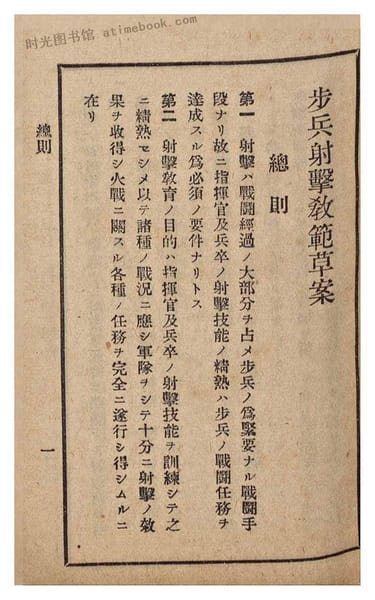 时光图书馆 atimebook.com
步兵射擊教範草案
總則
第一 射擊ハ戰鬪經過ノ大部分ヲ占メ步兵ノ爲緊要ナル戰鬪手
段ナリ故ニ指揮官及兵卒ノ射擊技能ノ精熟ハ步兵ノ戰鬪任務ヲ
達成スル爲必須ノ要件ナリトス
第二 射擊敎育ノ目的ハ指揮官及兵卒ノ射擊技能ヲ訓練シテ之
ニ精熟セシメ以テ諸種ノ戰況ニ應シ軍隊ヲシテ十分ニ射擊ノ效
果ヲ收得シ火戰ニ關スル各種ノ任務ヲ完全ニ遂行シ得シムルニ
在リ
總則
一